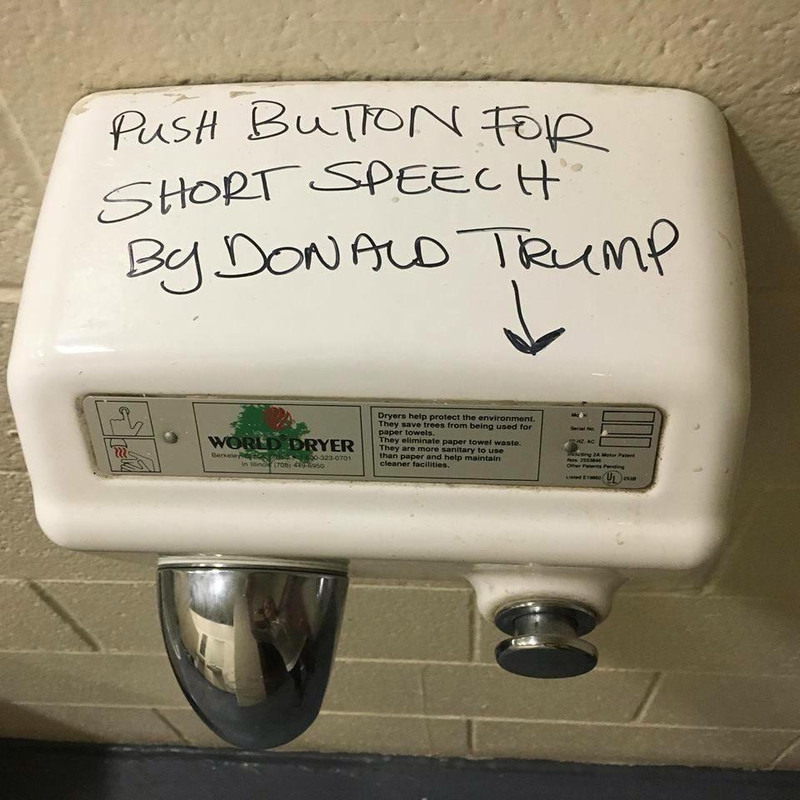 PUSH BUTTON FOR
SHORT SPEECH
BY DONALD TRUMP
WORLD DRYER
in Illinois (708) 449-6950
Dryers help protect the environment.
They save trees from being used for
paper towels.
They eliminate paper towel waste.
They are more sanitary to use
than paper and help maintain
cleaner facilities.
Serial No
HZ. AC
Including 2A Motor Patent
Other Patents Pending
Listed
UL